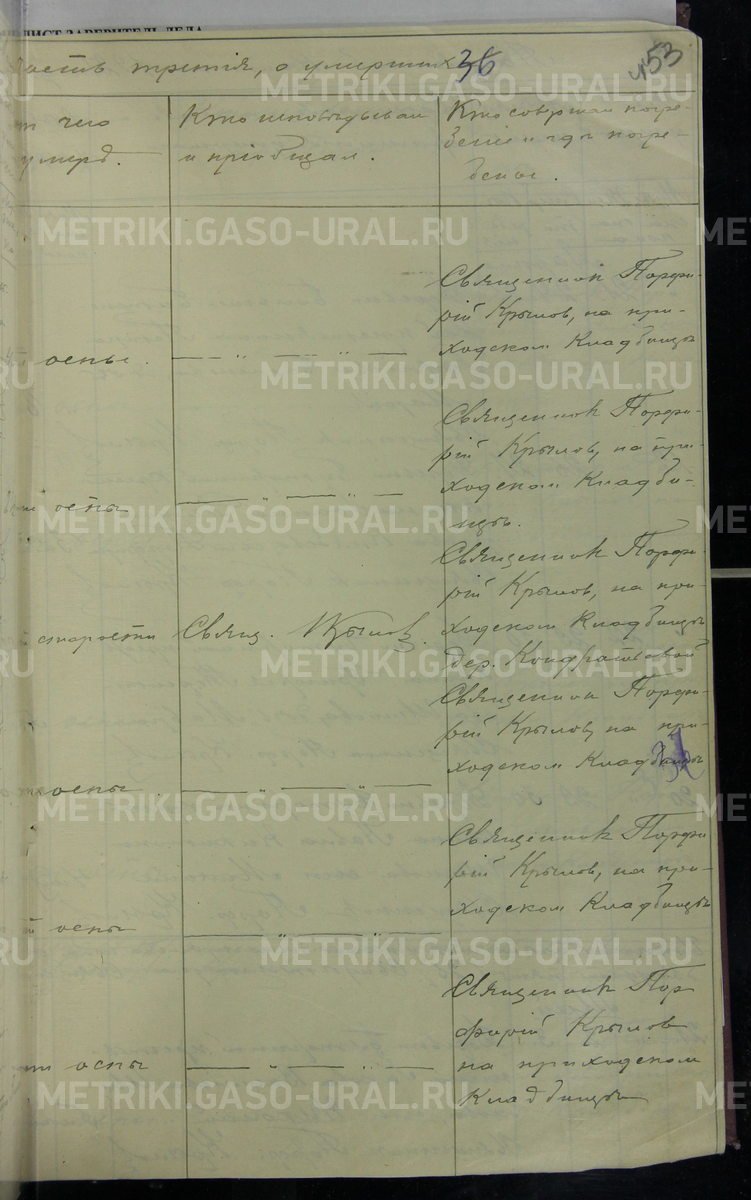 ЛИСТ ЗАВЕРИТЕЛЬ ДЕЛА
Часть третія, о умершихъ 36
53
от чего
умеръ.
Кто исповѣдывалъ
и пріобщалъ.
Кто совершалъ погре-
беніе и гдѣ погре-
бены.
оспы.
— „ — „ —
Священникъ Порфи-
рій Крыловъ, на при-
ходскомъ Кладбищѣ
оспы
— „ — „ —
Священникъ Порфи-
рій Крыловъ, на при-
ходскомъ Кладби-
щѣ.
старости
Свящ. Крыловъ.
Священникъ Порфи-
рій Крыловъ, на при-
ходскомъ Кладбищѣ
дер. Кондратьевой
оспы
— „ — „ —
Священникъ Порфи-
рій Крыловъ, на при-
ходскомъ Кладбищѣ
оспы
— „ — „ —
Священникъ Порфи-
рій Крыловъ, на при-
ходскомъ Кладбищѣ
оспы
— „ — „ —
Священникъ Пор
фирій Крыловъ
на приходскомъ
Кладбищѣ
METRIKI.GASO-URAL.RU